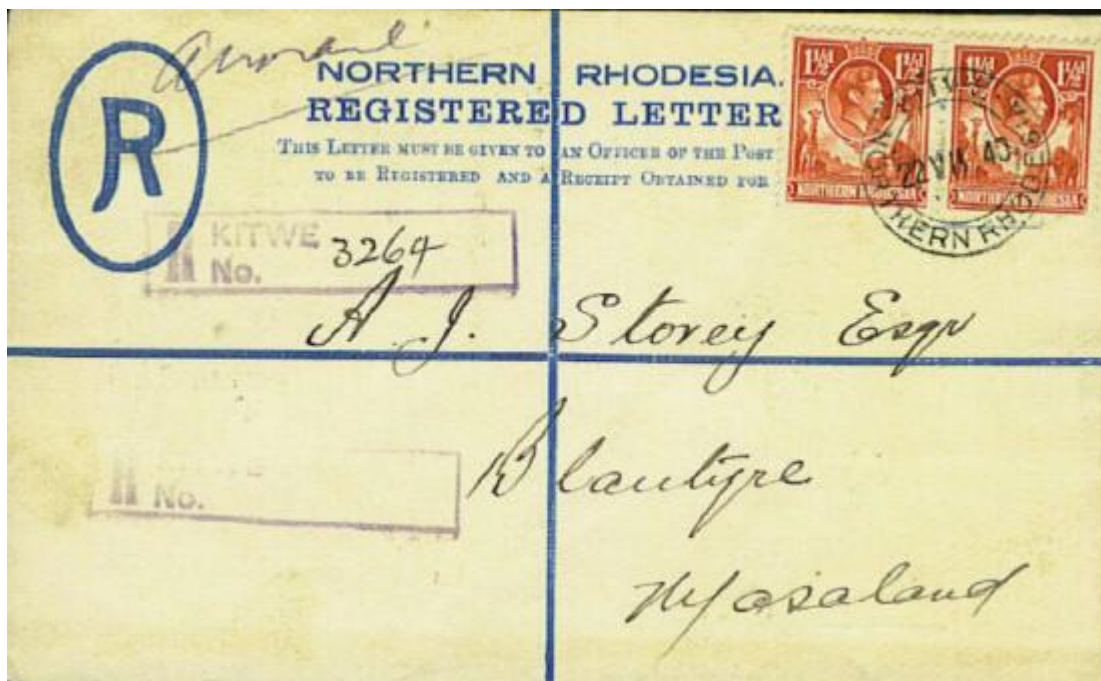 Airmail
R
NORTHERN RHODESIA.
REGISTERED LETTER
THIS LETTER MUST BE GIVEN TO AN OFFICER OF THE POST
TO BE REGISTERED AND A RECEIPT OBTAINED FOR
1½d 1½d 1½d 1½d
NORTHERN RHODESIA NORTHERN RHODESIA
KITWE
NORTHERN RHODESIA
R KITWE
No. 3264
A. J. Storey Esqr
R KITWE
No.
Blantyre
Nyasaland